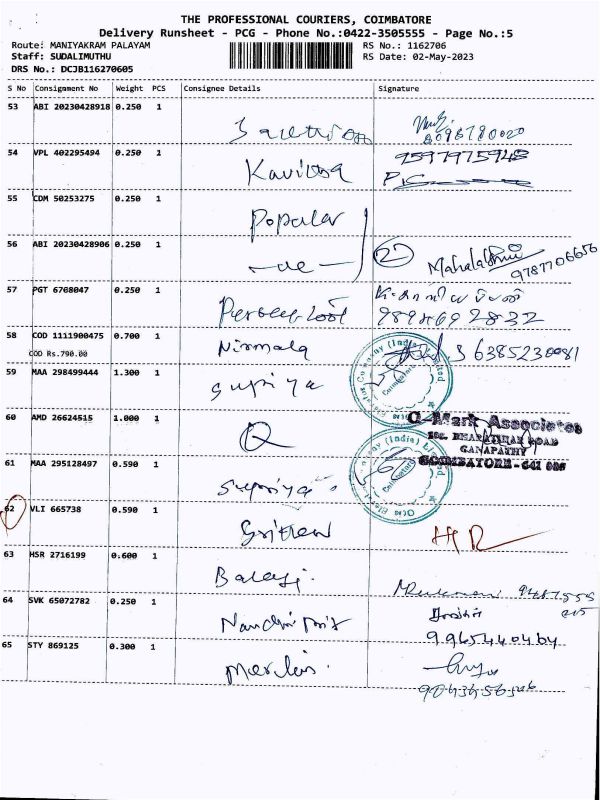 THE PROFESSIONAL COURIERS, COIMBATORE
Delivery Runsheet - PCG - Phone No.:0422-3505555 - Page No.:5
Route: MANIYAKRAM PALAYAM
RS No.: 1162706
Staff: SUDALIMUTHU
RS Date: 02-May-2023
DRS No.: DCJB116270605
S No Consignment No Weight PCS Consignee Details Signature
53 ABI 20230428918 0.250 1
54 VPL 402295494 0.250 1
Kavitha
55 CDM 50253275 0.250 1
Popular
56 ABI 20230428906 0.250 1
2
Mahalakshmi
9787706656
57 PGT 6768047 0.250 1
58 COD 1111900475 0.700 1
Nirmala
6385230081
COD Rs.790.00
59 MAA 298499444 1.300 1
Supriya
60 AMD 26624515 1.000 1
Q
Q-Mark Associates
BHARATHIAR ROAD
GANAPATHY
COIMBATORE - 641 006
61 MAA 295128497 0.590 1
Supriya
62 VLI 665738 0.590 1
63 HSR 2716199 0.600 1
Balaji.
64 SVK 65072782 0.250 1
9965440464
65 STY 869125 0.300 1
Merlin.